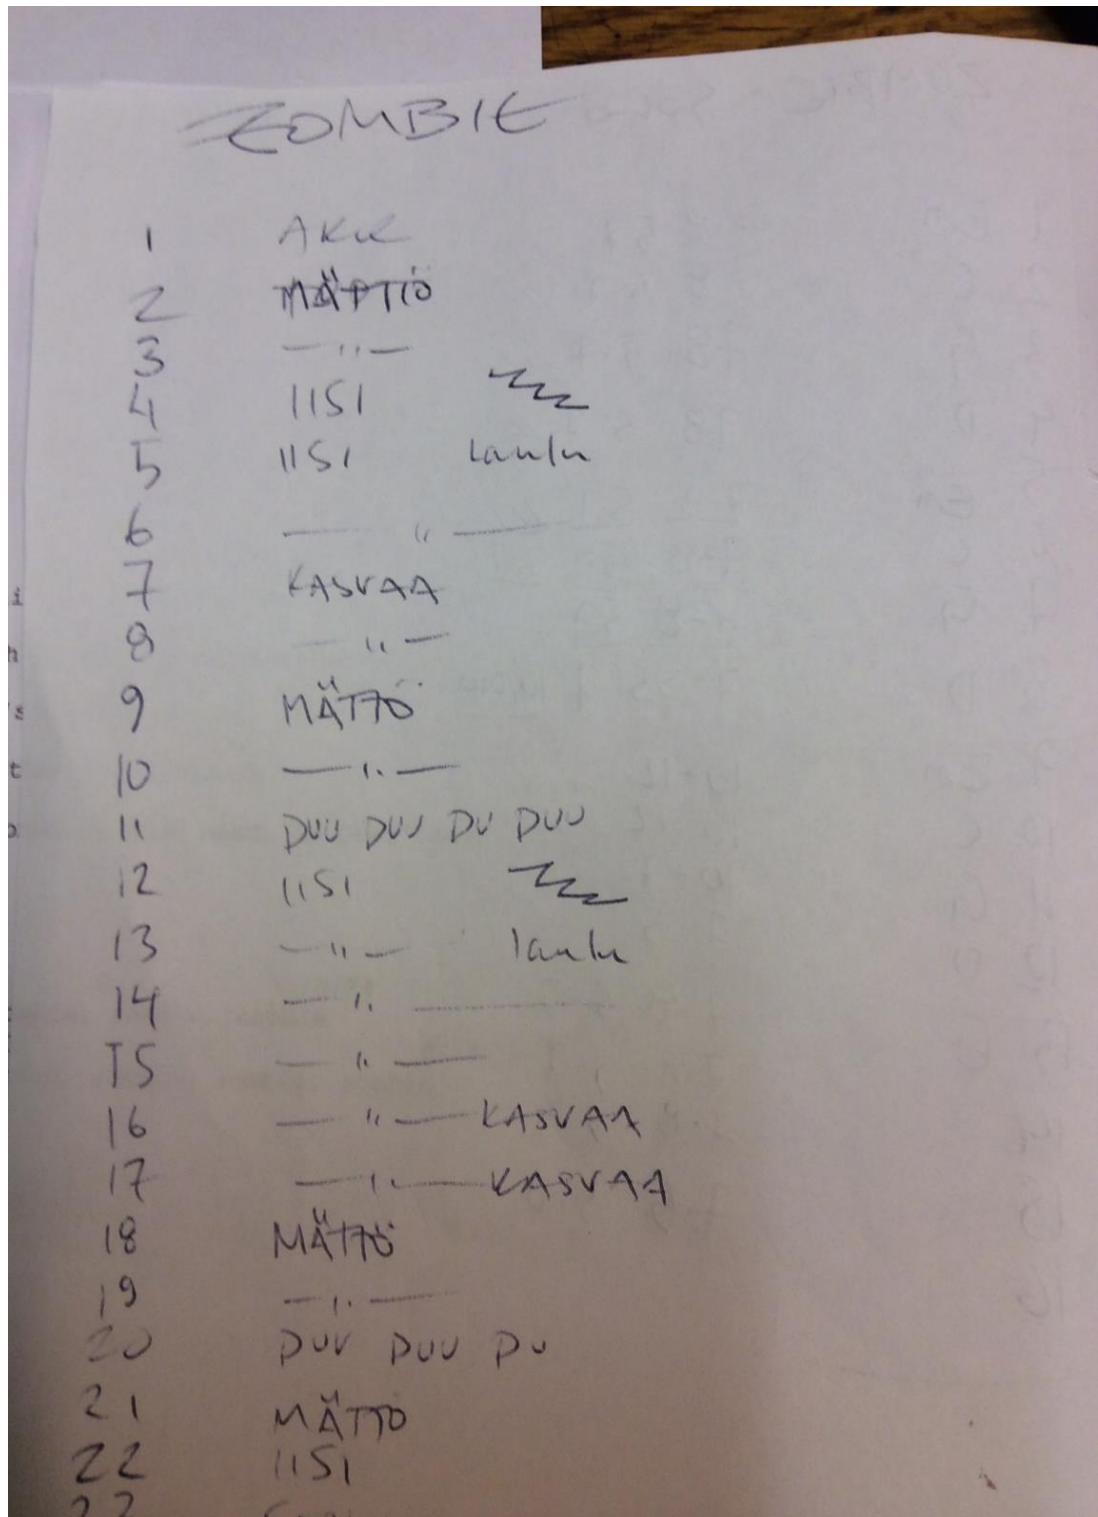 ZOMBIE
1 AKK
2 MÄTTÖ
3 — " —
4 IISI
5 IISI laulu
6 — " —
7 KASVAA
8 — " —
9 MÄTTÖ
10 — " —
11 DUU DUU DU DUU
12 IISI
13 — " — laulu
14 — " —
15 — " —
16 — " — KASVAA
17 — " — KASVAA
18 MÄTTÖ
19 — " —
20 DUU DUU DU
21 MÄTTÖ
22 IISI